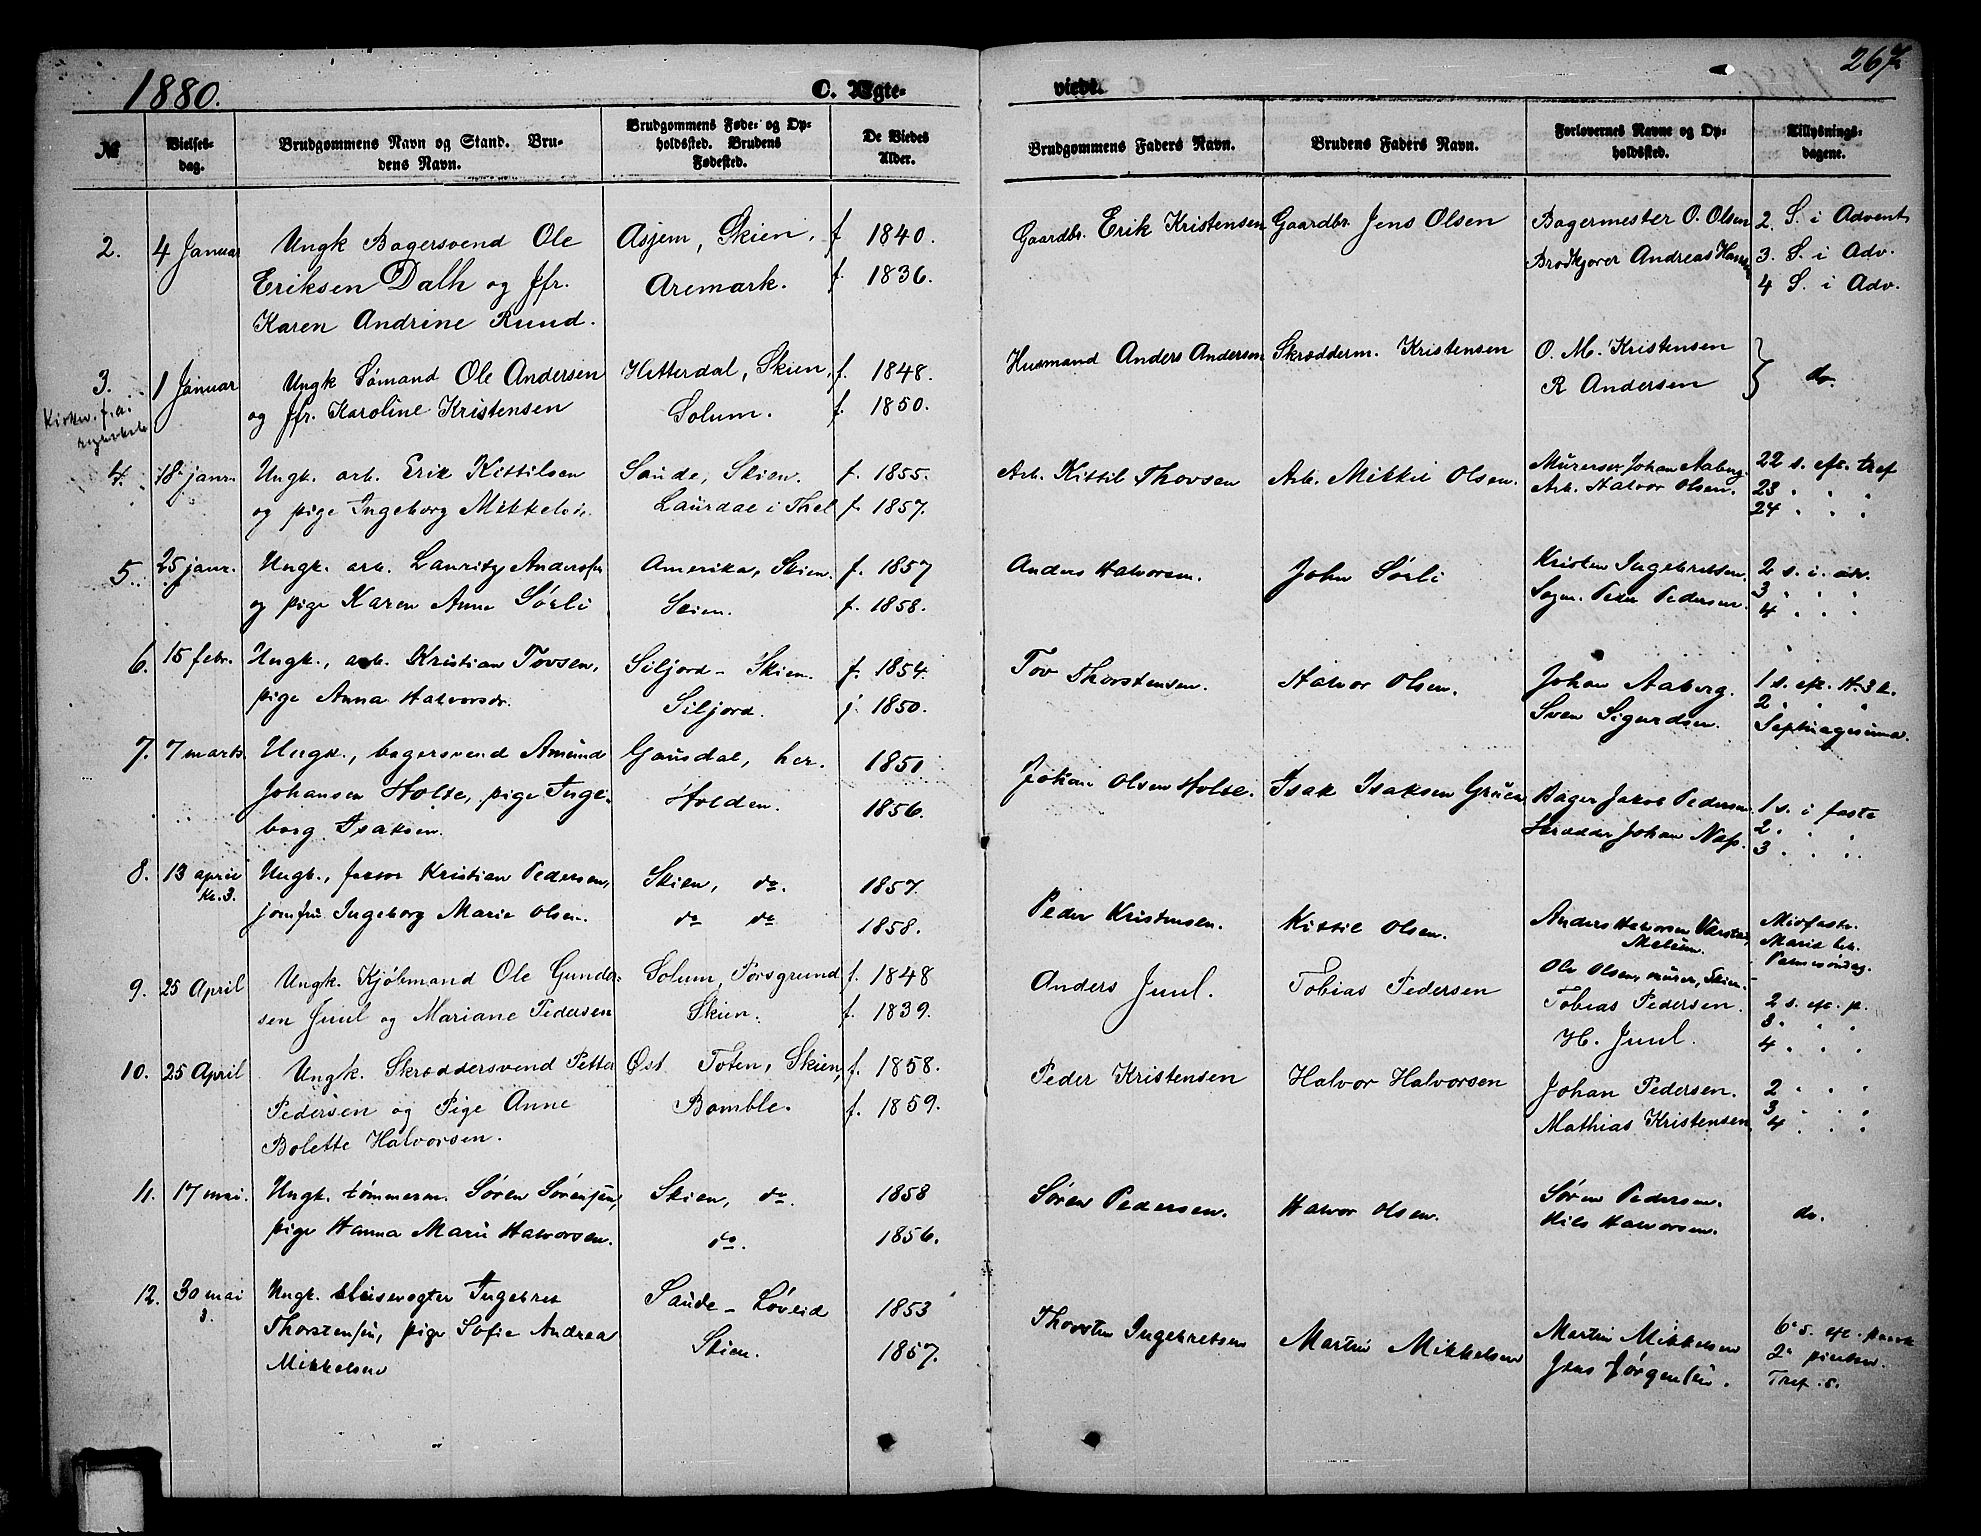 1880.
C. Ægte-
viede.
267
№
Vielses-
dag.
Brudgommens Navn og Stand. Bru-
dens Navn.
Brudgommens Føde- og Op-
holdssted. Brudens
Fødested.
De Viedes
Alder.
Brudgommens Faders Navn.
Brudens Faders Navn.
Forlovernes Navne og Op-
holdssted.
Tillysnings-
dagene.
2. 4 Januar Ungk Bagersvend Ole Asjem, Skien, f 1840. Gaardbr. Erik Kristensen Gaardbr. Jens Olsen Bagermester O. Olsen 2. S. i Advent
Eriksen Dalh og Jfr. Aremark. f. 1836. Brødkjører Andreas 3. S. i Adv.
Karen Andrine Ruud. 4 S. i Adv.
3. 1 Januar Ungk Sømand Ole Andersen Hitterdal, Skien, f. 1848. Husmand Anders Andersen Skrædderm. Kristensen O. M. Kristensen do.
og Jfr. Karoline Kristensen Solum. f. 1850. R Andersen
4. 18 janr. Ungk. arb. Erik Kittilsen Saude, Skien. f. 1855. Arb. Kittil Thovsen Arb. Mikkel Olsen. Murersv. Johan Aaberg. 22 s. eft. tref
og pige Ingeborg Laurdal i Thel f. 1857. Arb. Halvor Olsen. 23 " " "
24 " " "
5. 25 janr. Ungk. arb. Lauritz Andersen Amerika, Skien. f. 1857 Anders Halvorsen. John Sørli Kristen Ingebretsen. 2 s. i. adv.
og pige Karen Anne Sørli Skien. f. 1858. Peder Pedersen. 3 " " "
4 " " "
6. 15 febr. Ungk., arb. Kristian Tovsen, Siljord - Skien. f. 1854. Tov Thorstensen. Halvor Olsen. Johan Aaberg. 1 s. eft. H. 3 k.
pige Anna Halvorsdr. Siljord. f. 1850. Sven Sigurdsen. 2 " " "
Septuagesima.
7. 7 marts Ungk., bagersvend Amund Gausdal, her. 1851 Johan Olsen Holte. Isak Isaksen Gruen Bager Jakob Pedersen 1 s. i faste
Johansen Holte, pige Inge- Holden. 1856. Skrædder Johan Næss. 2 " "
borg Isaksen. 3 " "
8. 13 april Ungk., Kristian Pedersen, Skien, do. 1857. Peder Kristensen. Kittil Olsen. Anders Halvorsen Midfaste.
Kl. 3. jomfru Ingeborg Marie Olsen. do do 1858. Melum. Maria bb.
Ole Olsen, murer, Skien. Palmesøndag.
9. 25 April Ungk. Kjøbmand Ole Gunder- Solum, Porsgrund f. 1848 Anders Juul. Tobias Pedersen Tobias Pedersen. 2 s. eft. p.
sen Juul og Mariane Pedersen Skien. f. 1839. H. Juul. 3 " "
4 " "
10. 25 April Ungk. Skræddersvend Petter Øst Toten, Skien, f. 1858. Peder Kristensen Halvor Halvorsen Johan Pedersen. 2 " "
Pedersen og Pige Anne Bamble. f. 1859. Mathias Kristensen 3 " "
Bolette Halvorsen. 4 " "
11. 17 mai. Ungk. tømmerm. Søren Sørensen, Skien, do. 1858 Søren Pedersen. Halvor Olsen. Søren Pedersen. do.
pige Hanna Marie Halvorsen. do. 1856. Nils Halvorsen.
12. 30 mai Ungk. slusevogter Ingebret Saude - Løveid 1853 Thorsten Ingebretsen Martin Mikkelsen Martin Mikkelsen 6 s. eft. paask
3. Thorstensen, pige Sofie Andrea Skien. 1857. Jens Jørgensen. 2 pintsed.
Mikkelsen Tref. s.